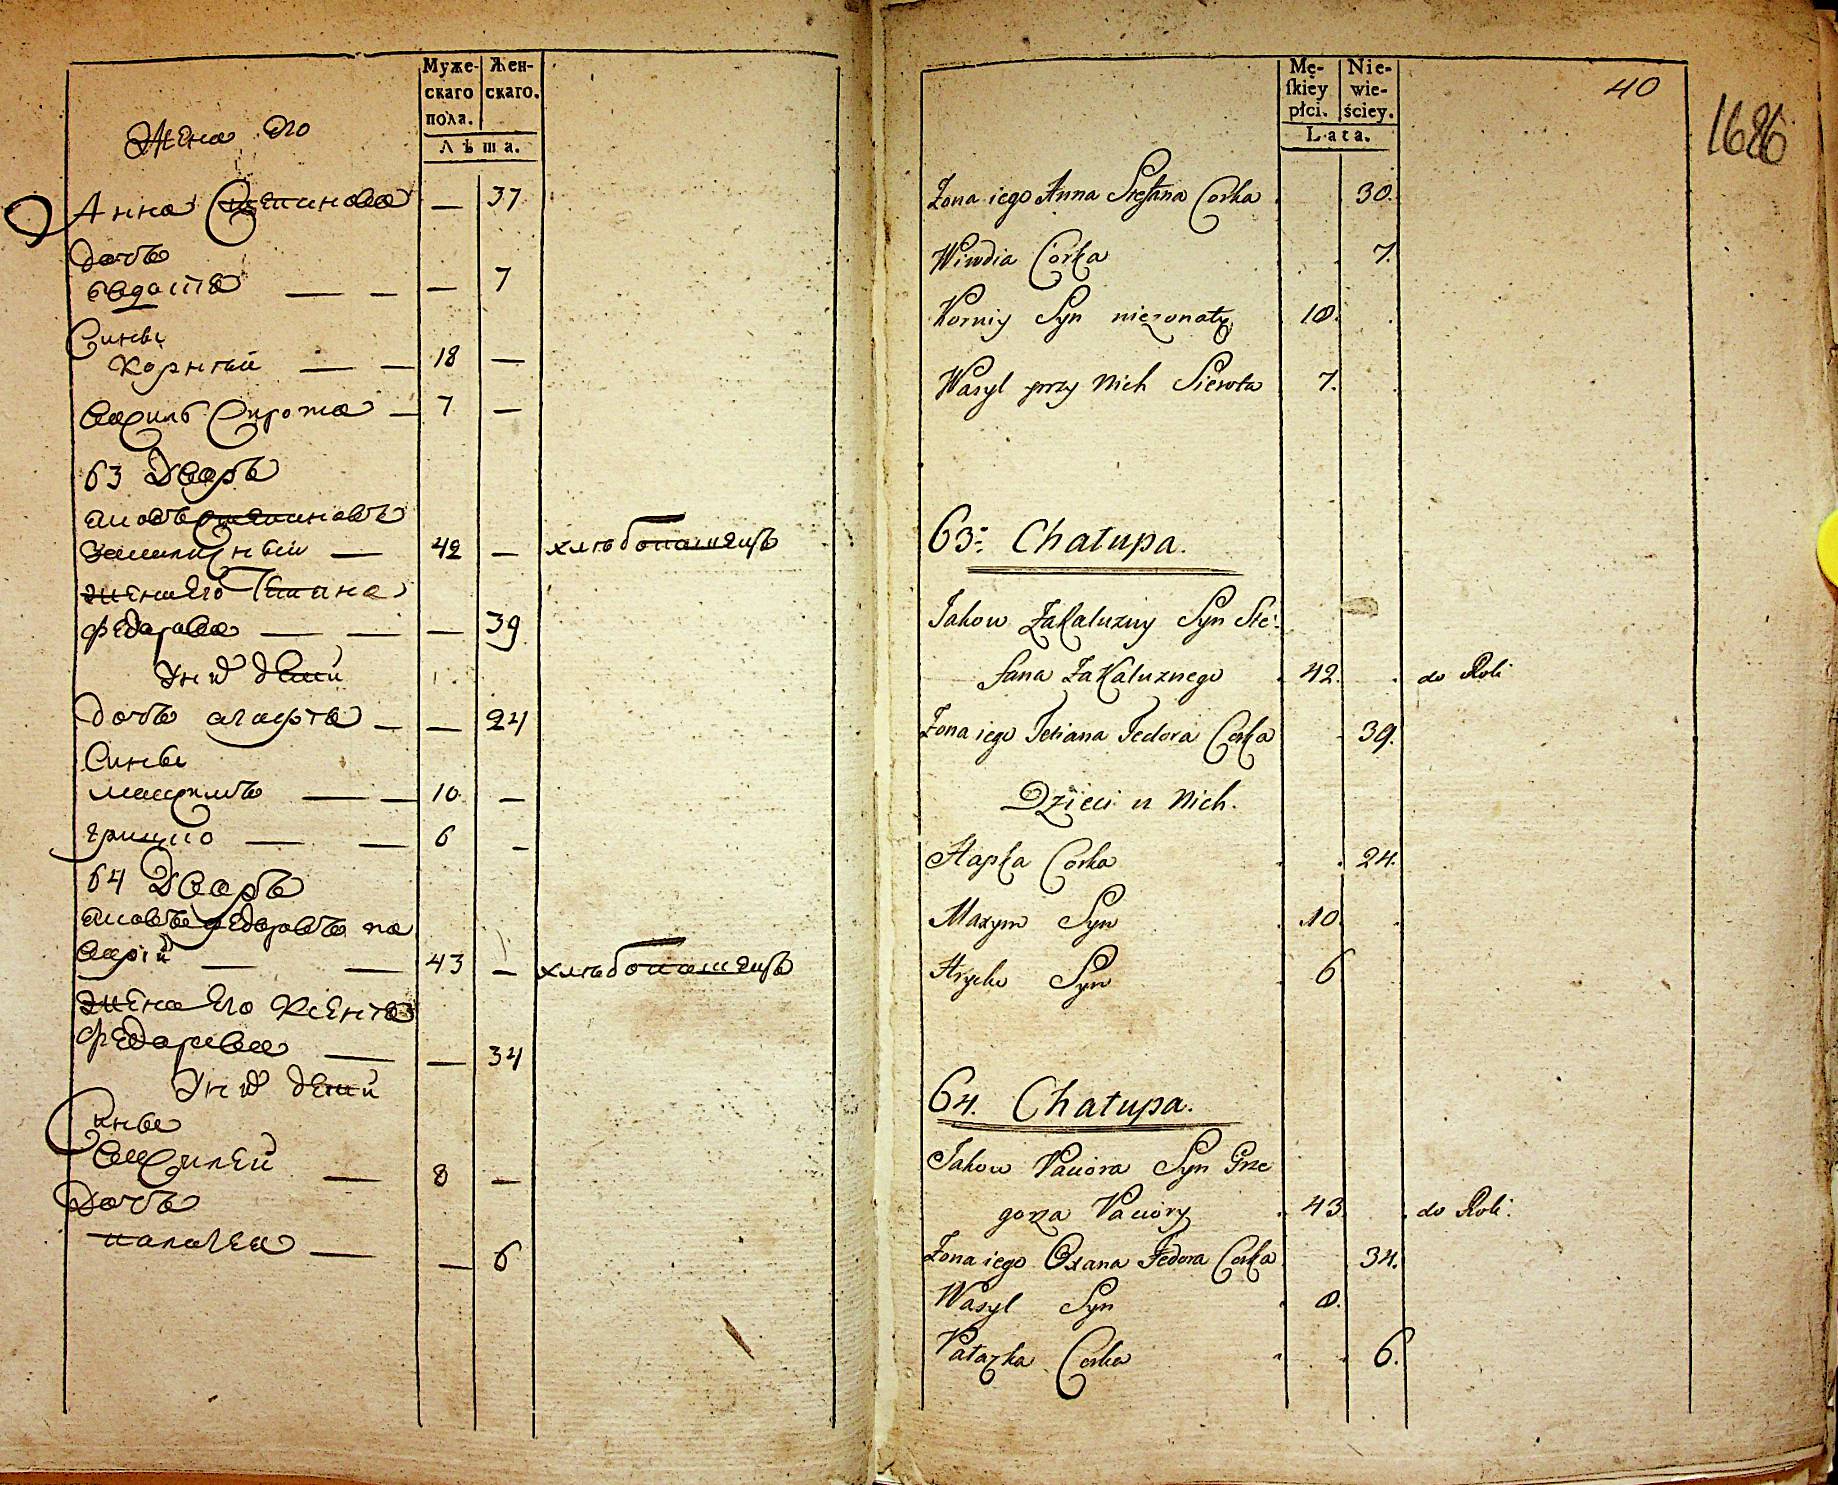 Муже-
скаго
пола.
Жен-
скаго.
Лѣта.
Жена его
Анна Степанова — 37
дочь
Євдокія — — — 7
Сини
Корнѣй — — 18 —
Василь Сирота — 7 —
63 Дворъ
Яковъ Степановъ
Закалужный — 42 — хлѣбопашецъ
жена его Татіана
Федорова — — — 39
У них дѣти
дочь Агафія — — 24
Сини
Максимъ — — 10 —
Грицко — — 6 —
64 Дворъ
Яковъ Федоровъ
— — 43 — хлѣбопашецъ
жена его Ксенія
Федорова — — 34
У них дѣти
Сини
Василей — 8 —
Дочь
Палагея — — 6
Mę-
skiey
płci.
Nie-
wie-
ściey.
Lata.
40
1686
Zona iego Anna Stefana Corka 30.
Wiwdia Córka 7.
Korniy Syn niezonaty 18.
Wasyl przy Nich Sierota 7.
63: Chałupa.
Jakow Zakaluzny Syn Ste:
fana Zakaluznego 42. do Roli
Zona iego Tetiana Fedora Corka 39.
Dzieci u Nich.
Hapka Corka 24.
Maxym Syn 10.
Hrycko Syn 6
64. Chałupa.
Jakow Paciora Syn Grze
gorza Paciory 43. do Roli.
Zona iego Oxana Fedora Corka 34.
Wasyl Syn 8.
Pałazka Corka 6.